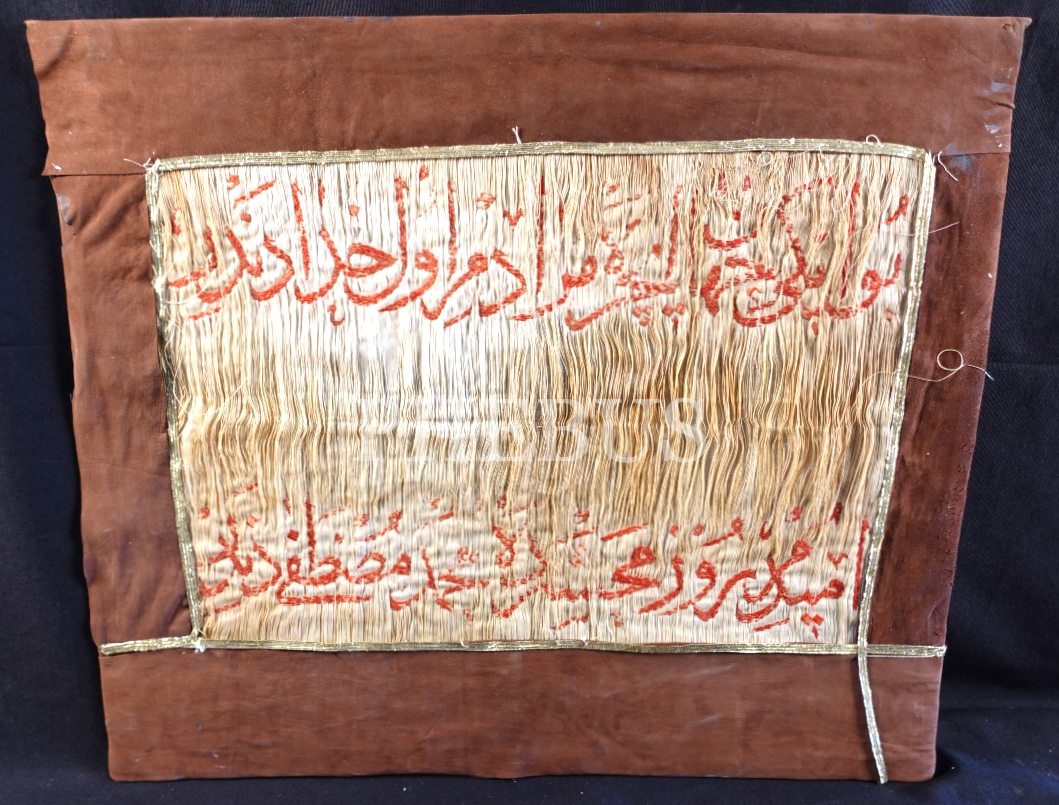 بو ایکی جهان ایچره مرادم اول خدادندر
امیدم روز محشرده محمد مصطفی دندر
PHEBUS